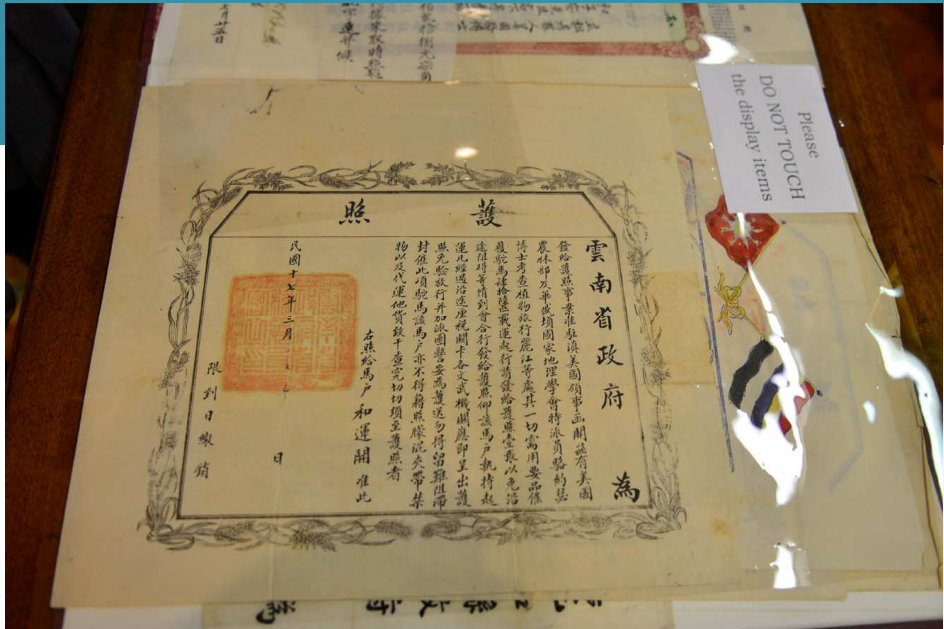 Please
DO NOT TOUCH
the display items
護照
雲南省政府 為
發給護照事案准駐滇美國領事函開茲有美國
農林部及華盛頓國家地理學會特派員駱約瑟
博士考查植物旅行麗江等處其一切需用要品僱
護駝馬肆拾陸匹載運起行請發給護照壹張以免沿
途阻碍等情到會合行發給護照仰該馬戶執持起
運凡經過沿途厘稅關卡各文武機關應即呈出護
照免驗放行并加派團警妥為護送勿得留難阻滯
封僱此項駝馬該馬戶亦不得藉照朦混夾帶禁
物以及代運他貨致干查究切切須至護照者
右照給馬戶 和運開 准此
民國十七年三月 日
限到日繳銷